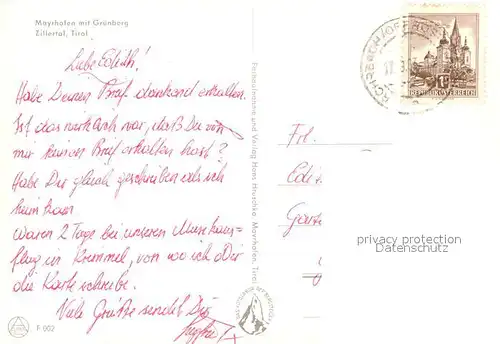 Mayrhofen mit Grünberg
Zillertal, Tirol
Liebe Edith!
Habe Deinen Brief dankend erhalten.
Ist das wirklich war, daß Du von
mir keinen Brief erhalten hast?
Habe Dir gleich geschrieben als ich
heim kam.
Waren 2 Tage bei unseren Musikaus-
flug in Krimmel, von wo ich Dir
die Karte schreibe.
Viele Grüße sendet Dir
F 002
Farbaufnahme und Verlag Hans Hruschka, Mayrhofen, Tirol
REPUBLIK ÖSTERREICH
Frl.
Edit
privacy protection
Datenschutz